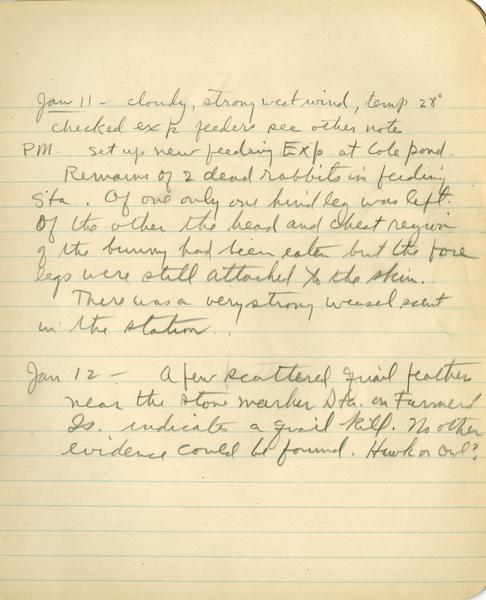 Jan 11 - cloudy, strong west wind, temp 28°
checked exp. feeders see other note
P.M. set up new feeding Exp at Cole pond.
Remains of 2 dead rabbits in feeding
Sta. Of one only one hind leg was left.
Of the other the head and chest region
of the bunny had been eaten but the fore
legs were still attached to the skin.
There was a very strong weasel scent
in the station.
Jan 12 - A few scattered quail feather
near the stone marker Sta. on Farmers
Is. indicate a quail kill. No other
evidence could be found. Hawk or Owl?